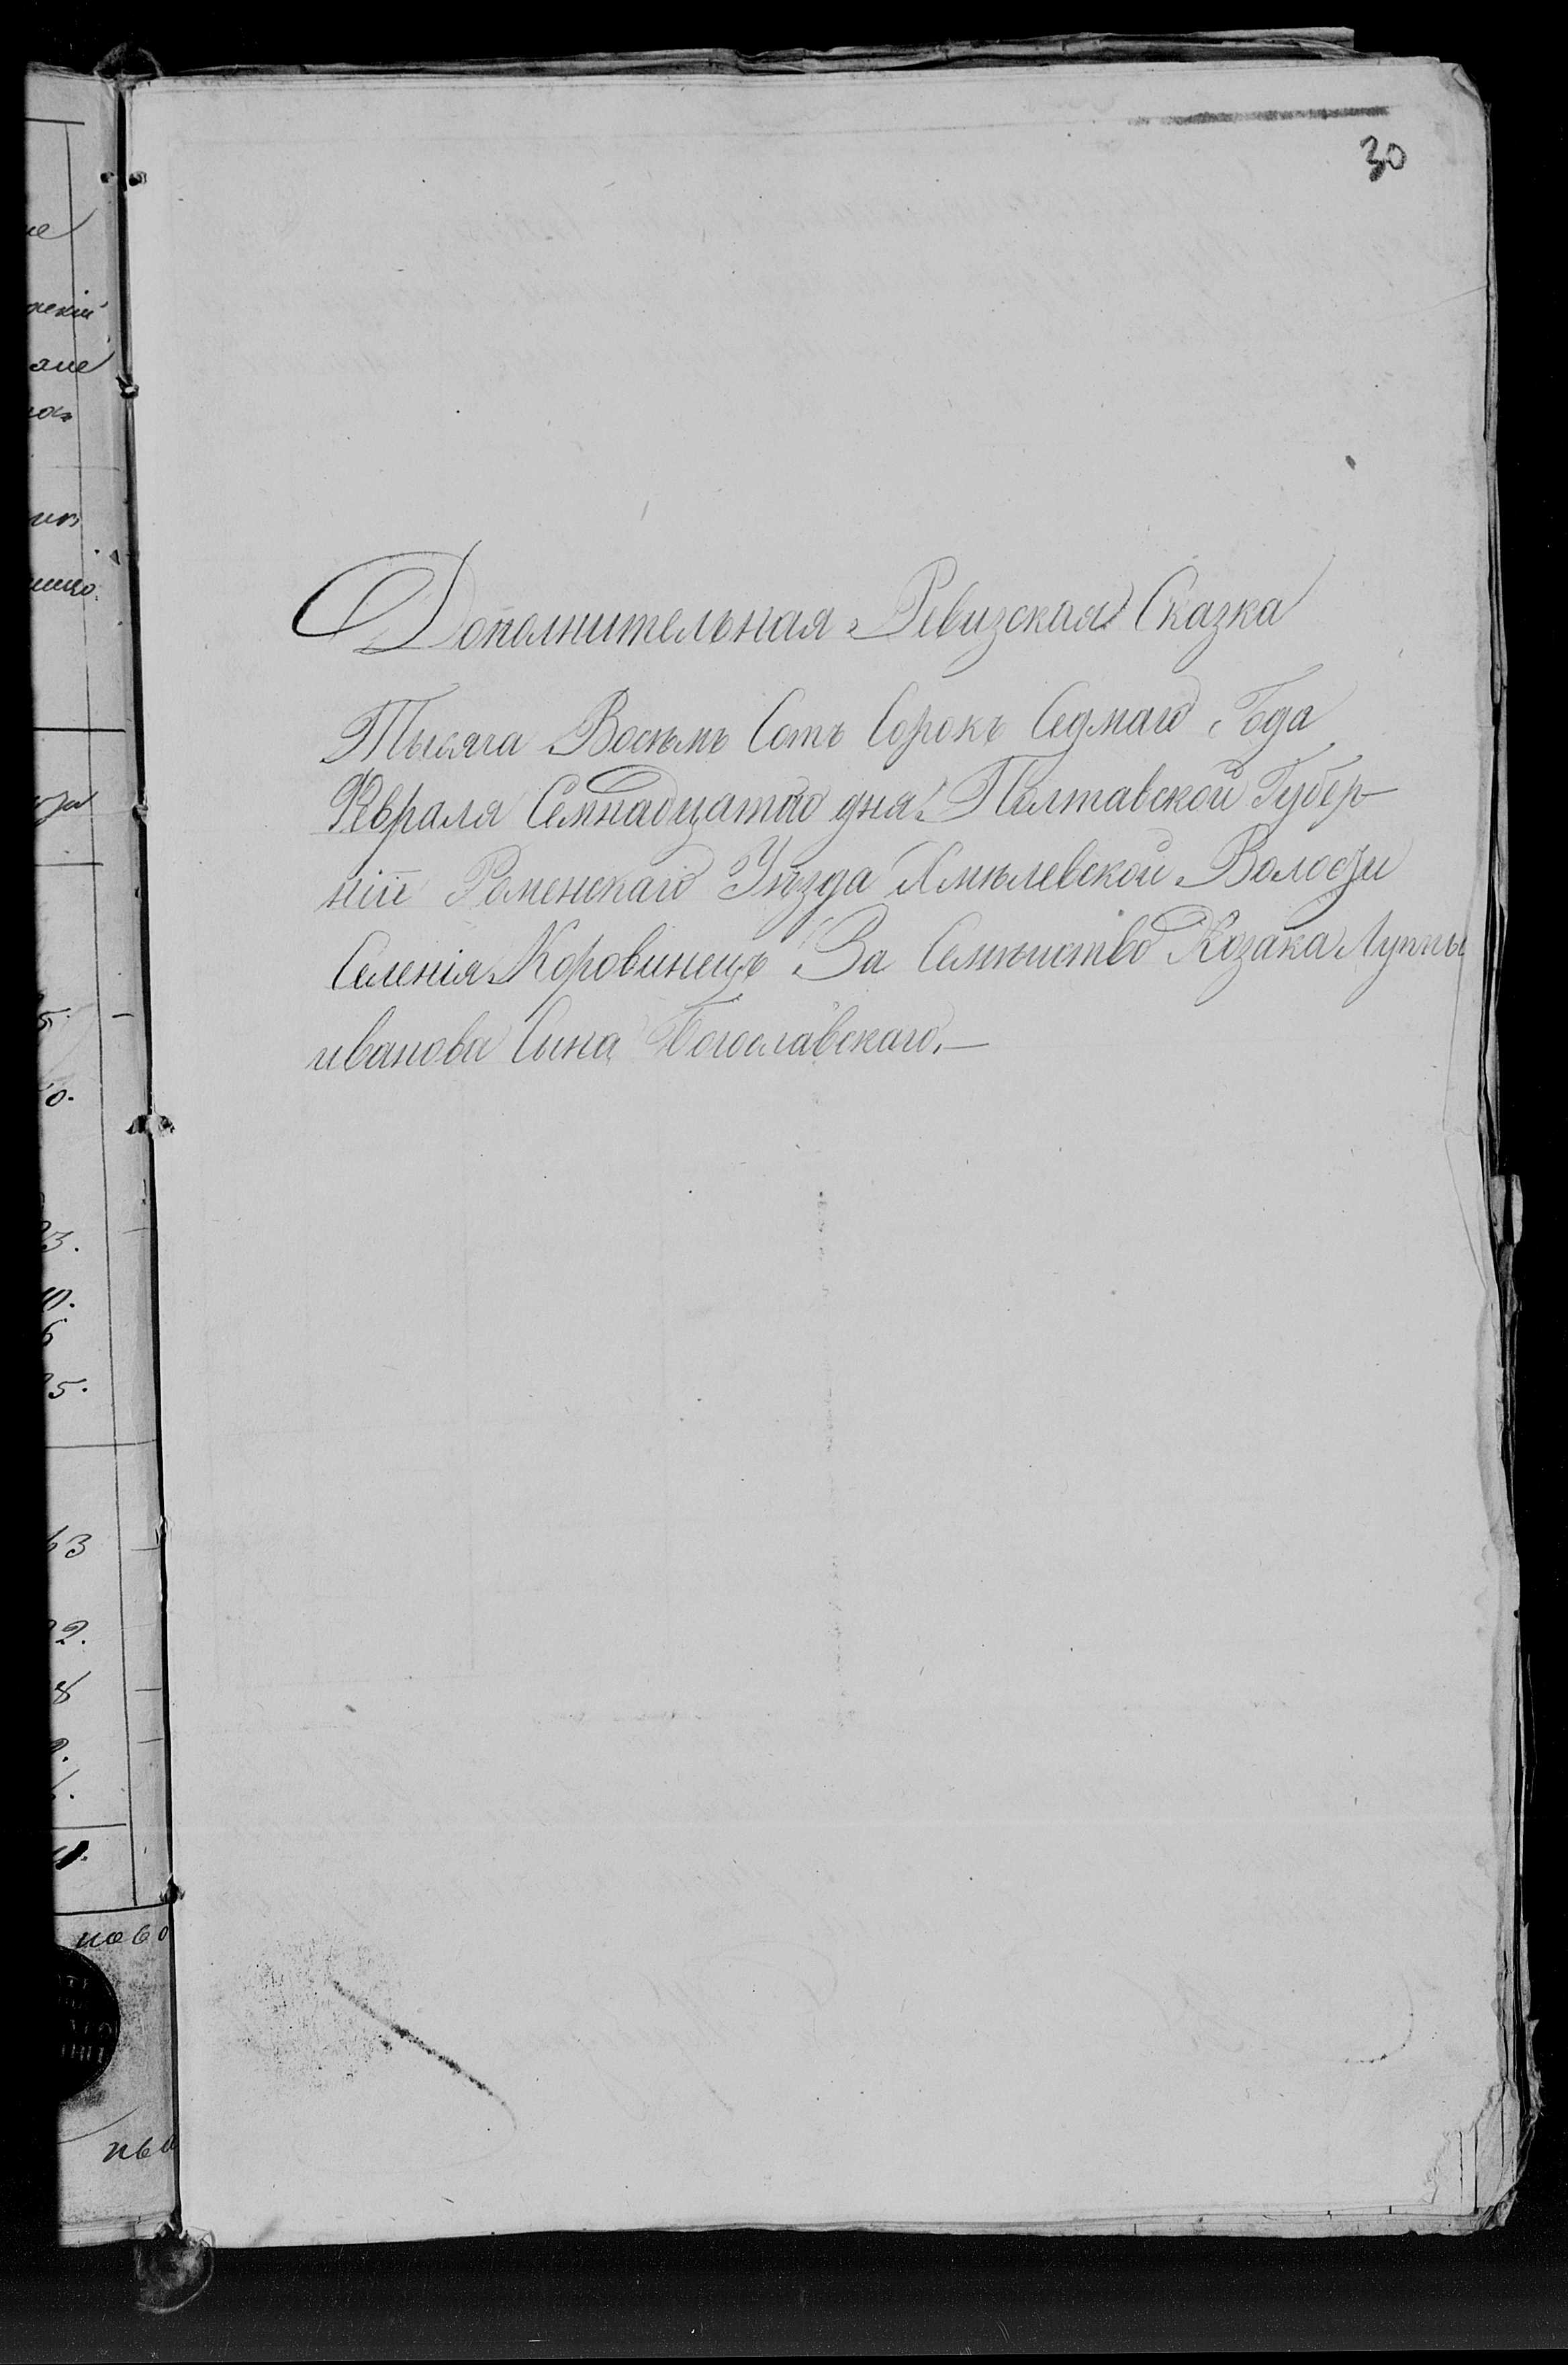 30
Дополнительная Ревизская Сказка
Тысяча Восемь Сотъ Сорокъ Седмаго Года
Февраля Семнадцатаго дня Полтавской Губер-
ніи Роменскаго Уѣзда Хмѣлевской Волости
Селенія Коровинецъ За Семѣиство Козака Луппы
иванова Сина Богославскаго.—